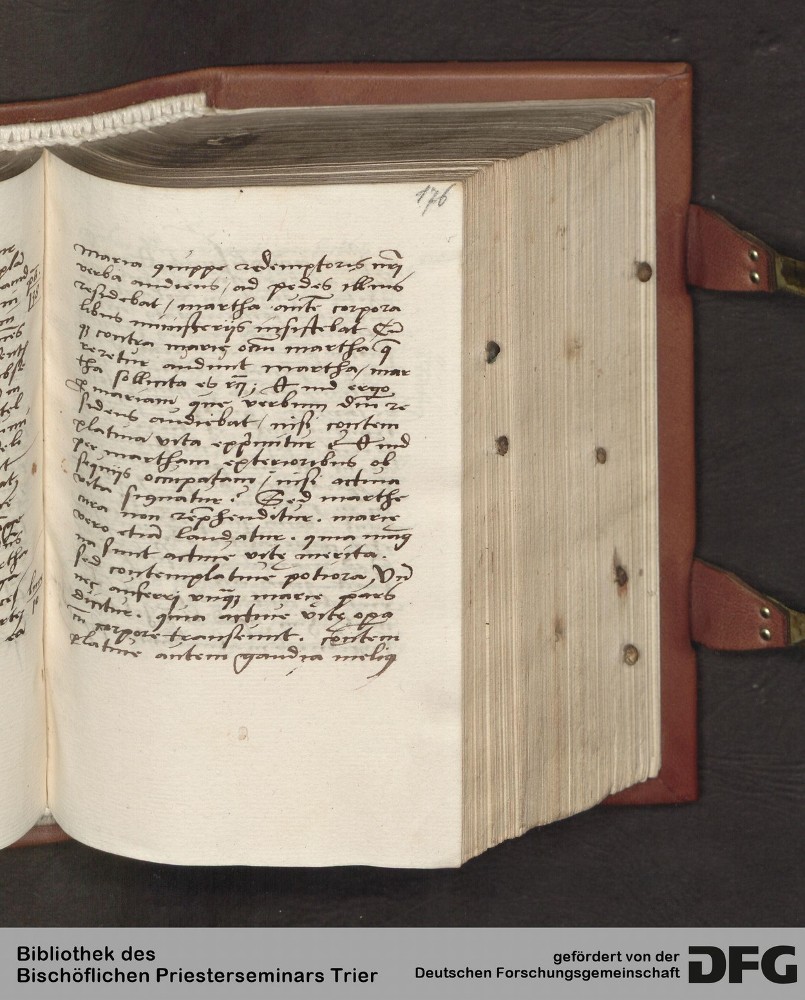 176
Maria quippe redemptoris nr̄i
verba audiens / ad pedes illius
residebat / martha aut̄e corpora
libus ministerijs insistebat Cū
contra marię ociū martha
retur audiuit martha / mar
tha sollicita es
mariam que verbum dn̄i re
sidens audiebat / nisi contem
platiua vita exprimitur
per martham exterioribus ob
sequijs occupatam / nisi actiua
vita signatur? Sed marthe
cura non rep̄henditur. marie
vero etiā laudatur. quia mag
na sunt actiue vitę merita.
sed contemplatiue potiora, Vn̄
nec auferri vnq̄ marię pars
dicitur. quia actiue vitę opa
cū corpore transeunt. contem
platiue autem gaudia melius
Bibliothek des
Bischöflichen Priesterseminars Trier
gefördert von der
Deutschen Forschungsgemeinschaft
DFG